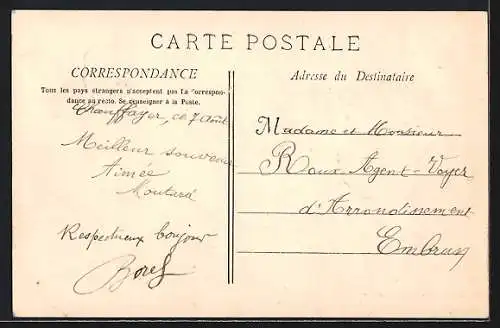 CARTE POSTALE
CORRESPONDANCE
Tous les pays étrangers n'acceptent pas la correspon-
dance au recto. Se renseigner à la Poste.
Chauffayer, ce 7 Août
Meilleur souvenir
Aimée
Moutard
Respectueux bonjour
Borel
Adresse du Destinataire
Madame et Monsieur
Roux Agent-Voyer
d'Arrondissement
Embrun